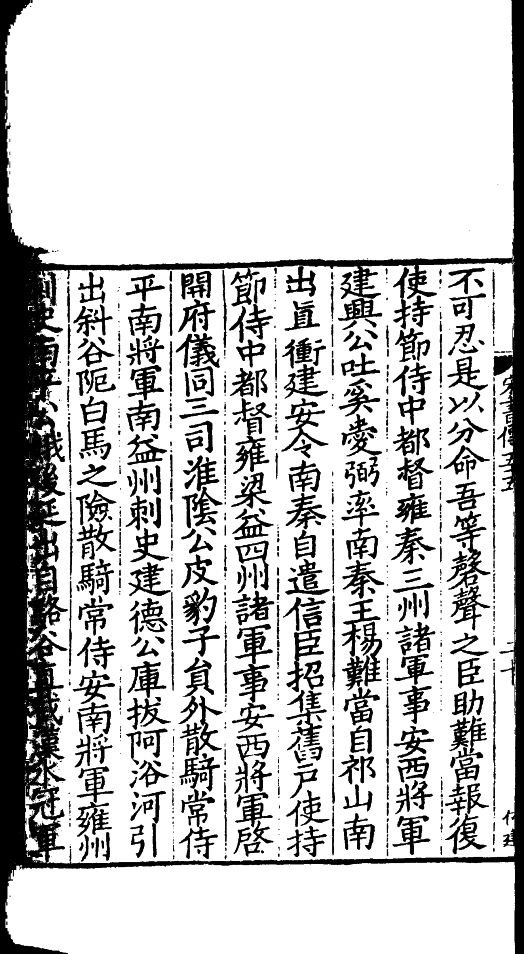 不可忍是以分命吾等磬聲之臣助難當報復
使持節侍中都督雍秦三州諸軍事安西將軍
建興公吐奚愛弼率南秦王楊難當自祁山南
出直衝建安令南秦自遣信臣招集舊戸使持
節侍中都督雍梁益四州諸軍事安西將軍啓
開府儀同三司淮陰公皮豹子貟外散騎常侍
平南將軍南益州刺史建德公庫拔阿浴河引
出斜谷阨白馬之險散騎常侍安南將軍雍州
刺史南平公娥後延出自駱谷直截漢水冠軍